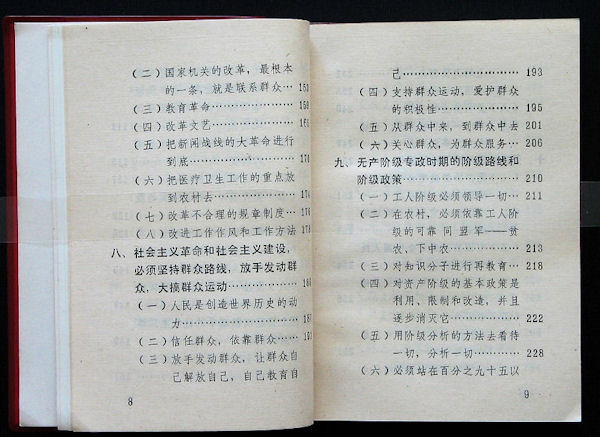 （二）国家机关的改革，最根本
的一条，就是联系群众…
（三）教育革命…
（四）改革文艺…
（五）把新闻战线的大革命进行
到底…
（六）把医疗卫生工作的重点放
到农村去…
（七）改革不合理的规章制度…
（八）改进工作作风和工作方法
八、社会主义革命和社会主义建设，
必须坚持群众路线，放手发动群
众，大搞群众运动…
（一）人民是创造世界历史的动
力…
（二）信任群众，依靠群众…
（三）放手发动群众，让群众自
己解放自己，自己教育自
8
己…193
（四）支持群众运动，爱护群众
的积极性…195
（五）从群众中来，到群众中去 201
（六）关心群众，为群众服务…206
九、无产阶级专政时期的阶级路线和
阶级政策…210
（一）工人阶级必须领导一切…211
（二）在农村，必须依靠工人阶
级的可靠同盟军——贫
农、下中农…213
（三）对知识分子进行再教育…218
（四）对资产阶级的基本政策是
利用、限制和改造，并且
逐步消灭它…222
（五）用阶级分析的方法去看待
一切，分析一切…228
（六）必须站在百分之九十五以
9